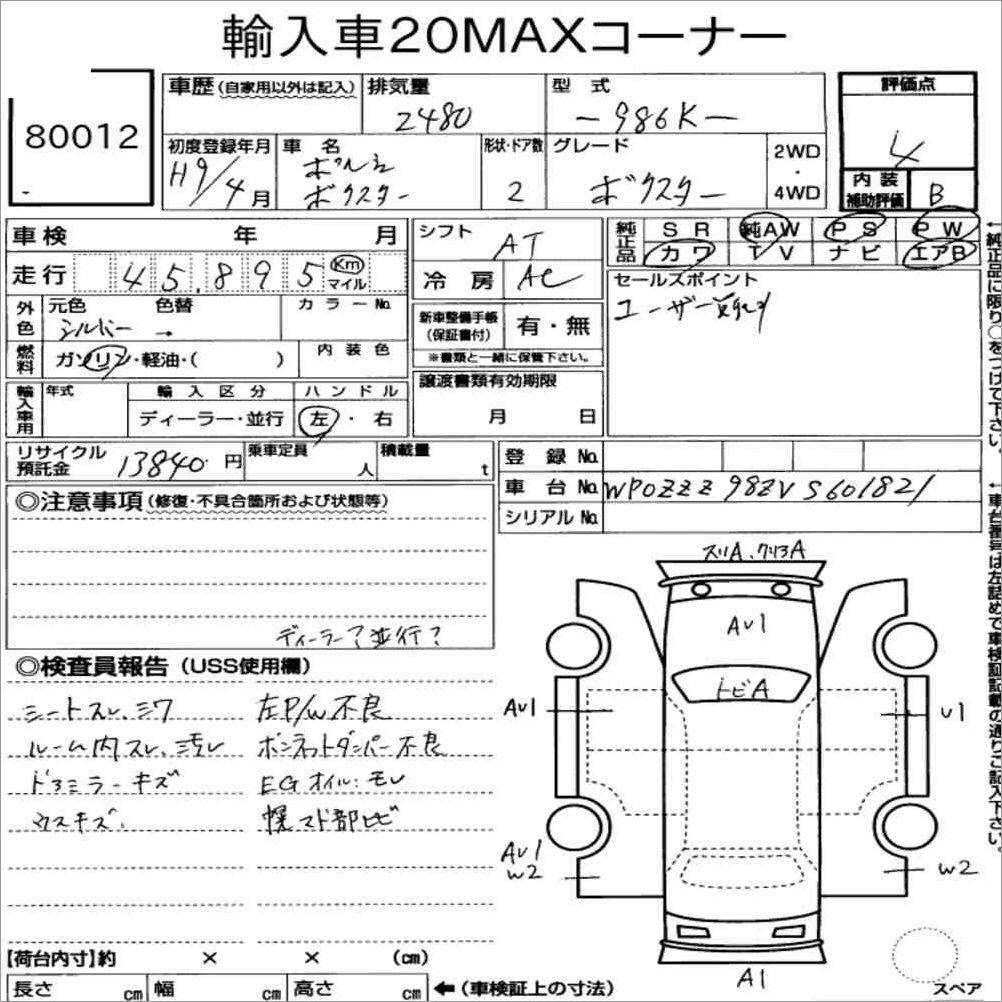 輸入車20MAXコーナー
80012
車歴(自家用以外は記入) 排気量 型 式 評価点
2480 -986K- 4
初度登録年月 車 名 形状・ドア数 グレード 2WD
H9/4月 ポルシェ ボクスター 2 ボクスター ・ 4WD
内装補助評価 B
車検 年 月 シフト AT 純正品 SR 純AW PS PW
走行 45,895 Km マイル 冷房 AC カワ TV ナビ エアB
セールスポイント
ユーザー買取り
外色 元色 色替 カラーNo.
シルバー →
新車整備手帳(保証書付) 有・無
※書類と一緒に保管下さい。
燃料 ガソリン・軽油・( ) 内装色
譲渡書類有効期限
月 日
輸入車用 年式 輸入区分 ハンドル
ディーラー・並行 左・右
リサイクル預託金 13840 円 乗車定員 人 積載量 t
登録No.
車台No. WP0ZZZ98ZVS601821
シリアルNo.
←純正品に限り○をつけて下さい。
←車台番号は左詰めで車検証記載の通りご記入下さい。
◎注意事項(修復・不具合箇所および状態等)
ディーラー?並行?
◎検査員報告(USS使用欄)
シートスレ、シワ 左P/W不良
ルーム内スレ、汚レ ボンネットダンパー不良
ドアミラーキズ EGオイルモレ
ガラスキズ 幌マド部ヒビ
スリA、クリアA
AU1
トビA
AU1 U1
AU1
W2 W2
A1
スペア
【荷台内寸】約 × × (cm)
長さ cm 幅 cm 高さ cm ←(車検証上の寸法)